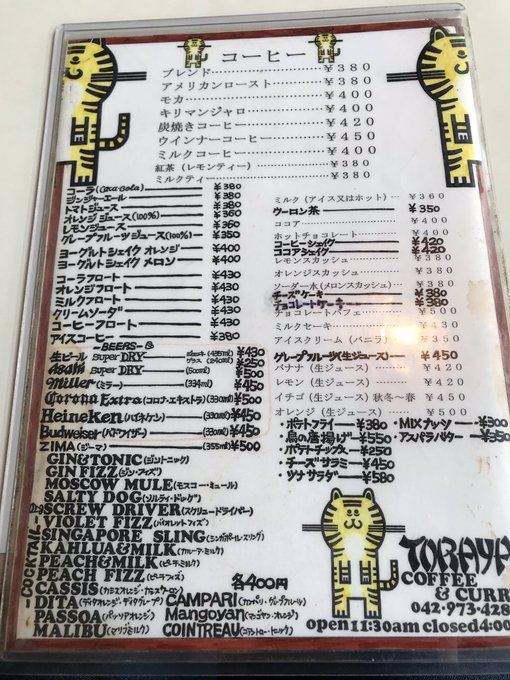 コーヒー
ブレンド ¥380
アメリカンロースト ¥380
モカ ¥400
キリマンジャロ ¥400
炭焼きコーヒー ¥420
ウインナーコーヒー ¥450
ミルクコーヒー ¥400
紅茶(レモンティー) ¥380
ミルクティー ¥380
コーラ(Coca-Cola) ¥380
ジンジャーエール ¥380
トマトジュース ¥380
オレンジジュース(100%) ¥360
レモンジュース ¥360
グレープフルーツジュース(100%) ¥350
ヨーグルトシェイク オレンジ ¥400
ヨーグルトシェイク メロン ¥400
コーラフロート ¥430
オレンジフロート ¥430
ミルクフロート ¥430
クリームソーダ ¥430
コーヒーフロート ¥430
アイスコーヒー ¥380
ミルク(アイス又はホット) ¥360
ウーロン茶 ¥350
ココア ¥400
ホットチョコレート
コーヒーシェイク ¥420
ココアシェイク ¥420
レモンスカッシュ
オレンジスカッシュ
ソーダー水(メロンスカッシュ)
チーズケーキ ¥380
チョコレートケーキ ¥380
チョコレートパフェ ¥500
ミルクセーキ ¥430
アイスクリーム(バニラ) ¥350
グレープフルーツ(生ジュース) ¥450
バナナ(生ジュース) ¥420
レモン(生ジュース) ¥420
イチゴ(生ジュース)秋冬~春 ¥450
オレンジ(生ジュース) ¥500
BEERS
生ビール super DRY ジョッキ(435ml) ¥430
グラス(240ml) ¥250
Asahi super DRY (500ml) ¥500
Miller (ミラー) (334ml) ¥450
Corona Extra (コロナ・エキストラ) (330ml) ¥500
Heineken (ハイネケン) (330ml) ¥450
Budweiser (バドワイザー) (330ml) ¥450
ZIMA (ジーマ) (355ml) ¥500
・ポテトフライ ¥380
・鳥の唐揚げ ¥550
・ポテトチップス ¥250
・チーズサラミ ¥450
・ツナサラダ ¥580
・MIXナッツ ¥300
・アスパラバター ¥350
COCKTAIL
GIN&TONIC (ジントニック)
GIN FIZZ (ジン・フィズ)
MOSCOW MULE (モスコー・ミュール)
SALTY DOG (ソルティ・ドッグ)
SCREW DRIVER (スクリュードライバー)
VIOLET FIZZ (バイオレットフィズ)
SINGAPORE SLING (シンガポール・スリング)
KAHLUA&MILK (カルーア・ミルク)
PEACH&MILK (ピーチ・ミルク)
PEACH FIZZ (ピーチフィズ)
CASSIS (カシスオレンジ・カシスウーロン)
DITA (ディタオレンジ・ディタグレープ)
PASSOA (パッソアオレンジ)
MALIBU (マリブミルク)
各400円
CAMPARI (カンパリ・グレープフルーツ)
Mangoyan (マンゴヤン・オレンジ)
COINTREAU
TORAYA
COFFEE
& CURR
042-973-428
open 11:30am closed 4:00